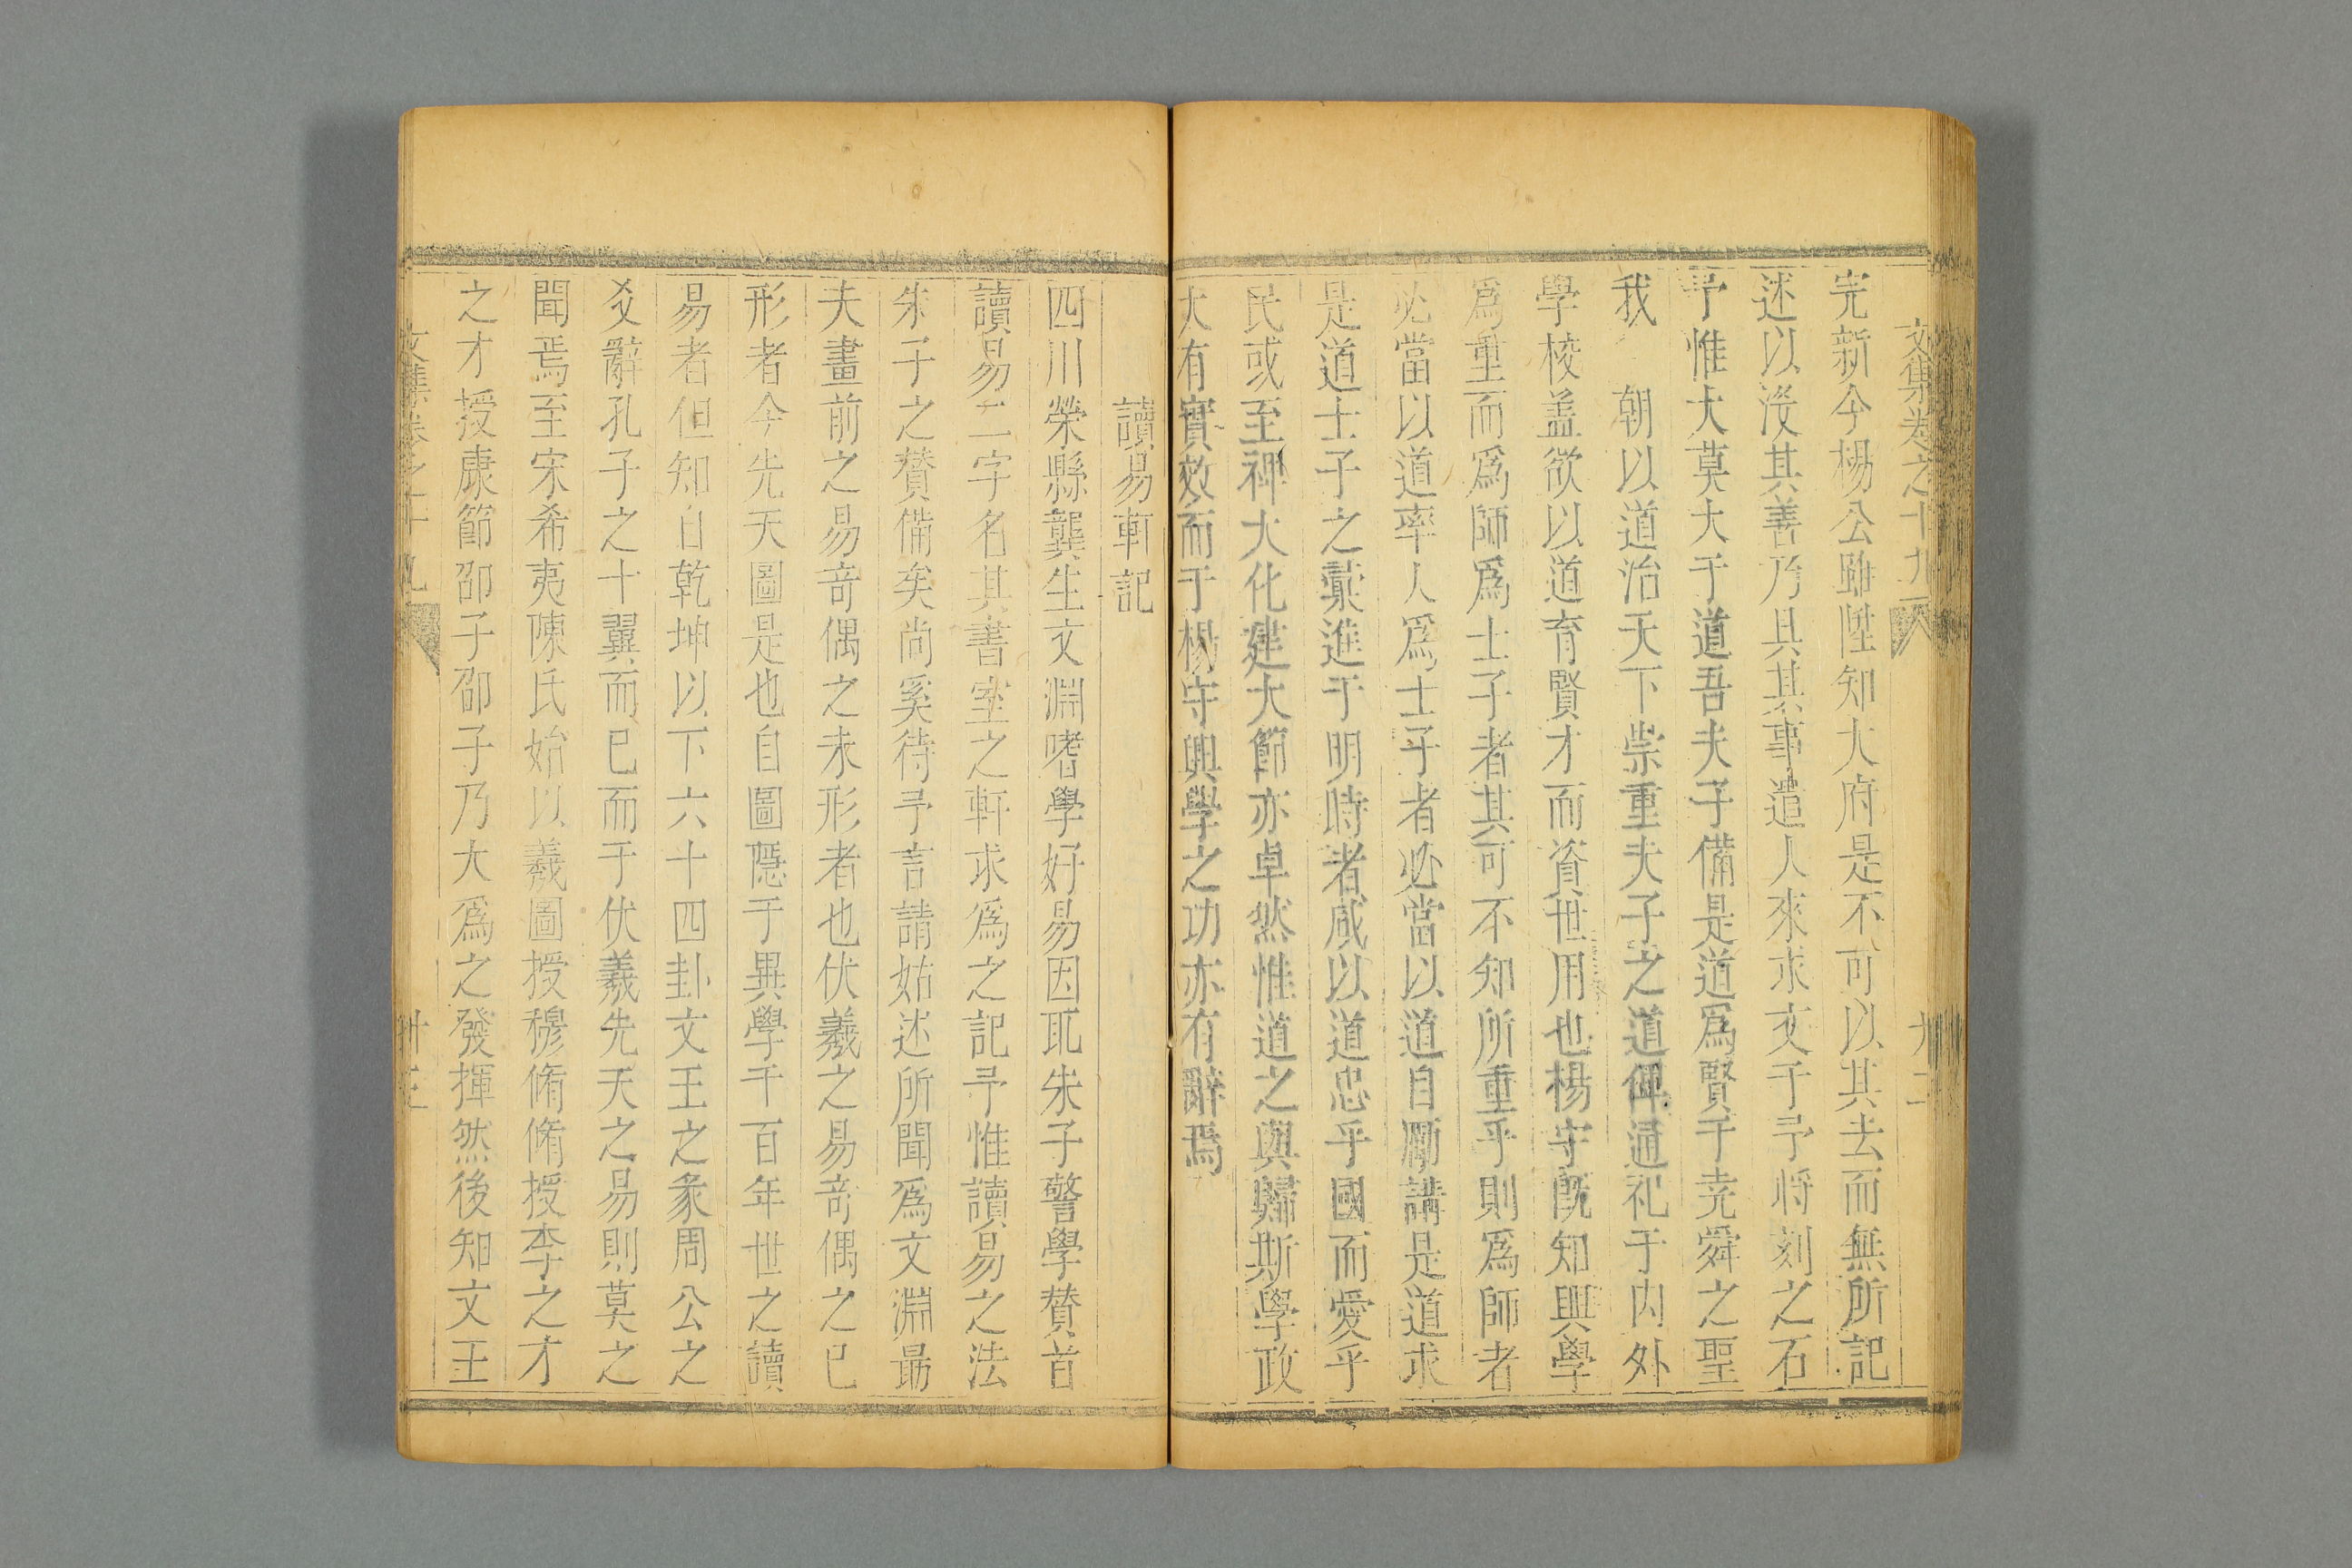 文集卷之十九
完新今楊公雖陞知大府是不可以其去而無所記
述以沒其善乃具其事遣人來求文于予將刻之石
予惟大莫大于道吾夫子備是道爲賢于堯舜之聖
我 朝以道治天下崇重夫子之道俾通祀于内外
學校盖欲以道育賢才而資世用也楊守旣知興學
爲重而爲師爲士子者其可不知所重乎則爲師者
必當以道率人爲士子者必當以道自勵講是道求
是道士子之彙進于明時者咸以道忠乎國而愛乎
民或至裨大化建大節亦卓然惟道之與歸斯學政
大有實效而于楊守興學之功亦有辭焉
讀易軒記
四川榮縣龔生文淵嗜學好易因取朱子警學賛首
讀易二字名其書室之軒求爲之記予惟讀易之法
朱子之賛備矣尚奚待予言請姑述所聞爲文淵最
夫畫前之易竒偶之未形者也伏羲之易竒偶之已
形者今先天圖是也自圖隱于異學千百年世之讀
易者但知自乾坤以下六十四卦文王之彖周公之
爻辭孔子之十翼而已而于伏羲先天之易則莫之
聞焉至宋希夷陳氏始以羲圖授穆脩脩授李之才
之才授康節邵子邵子乃大爲之發揮然後知文王
文集卷之十九
卅三